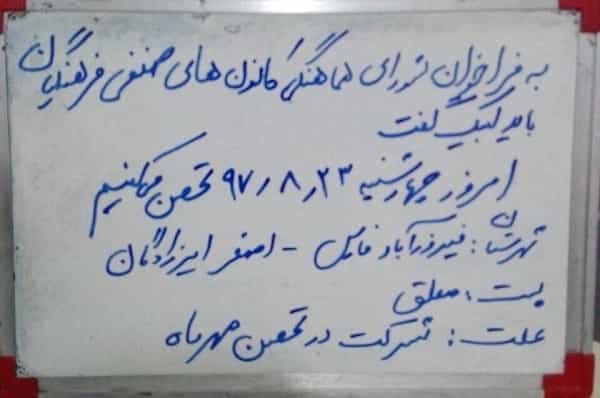 به فراخوان شورای هماهنگی کانون های صنفی فرهنگیان
باید لبیک گفت
امروز چهارشنبه ۹۷٫۸٫۲۳ تحصن میکنیم
شهرستان: فیروزآباد فارس - اصغر امیرزادگان
پست: معلق
علت: شرکت در تحصن مهرماه